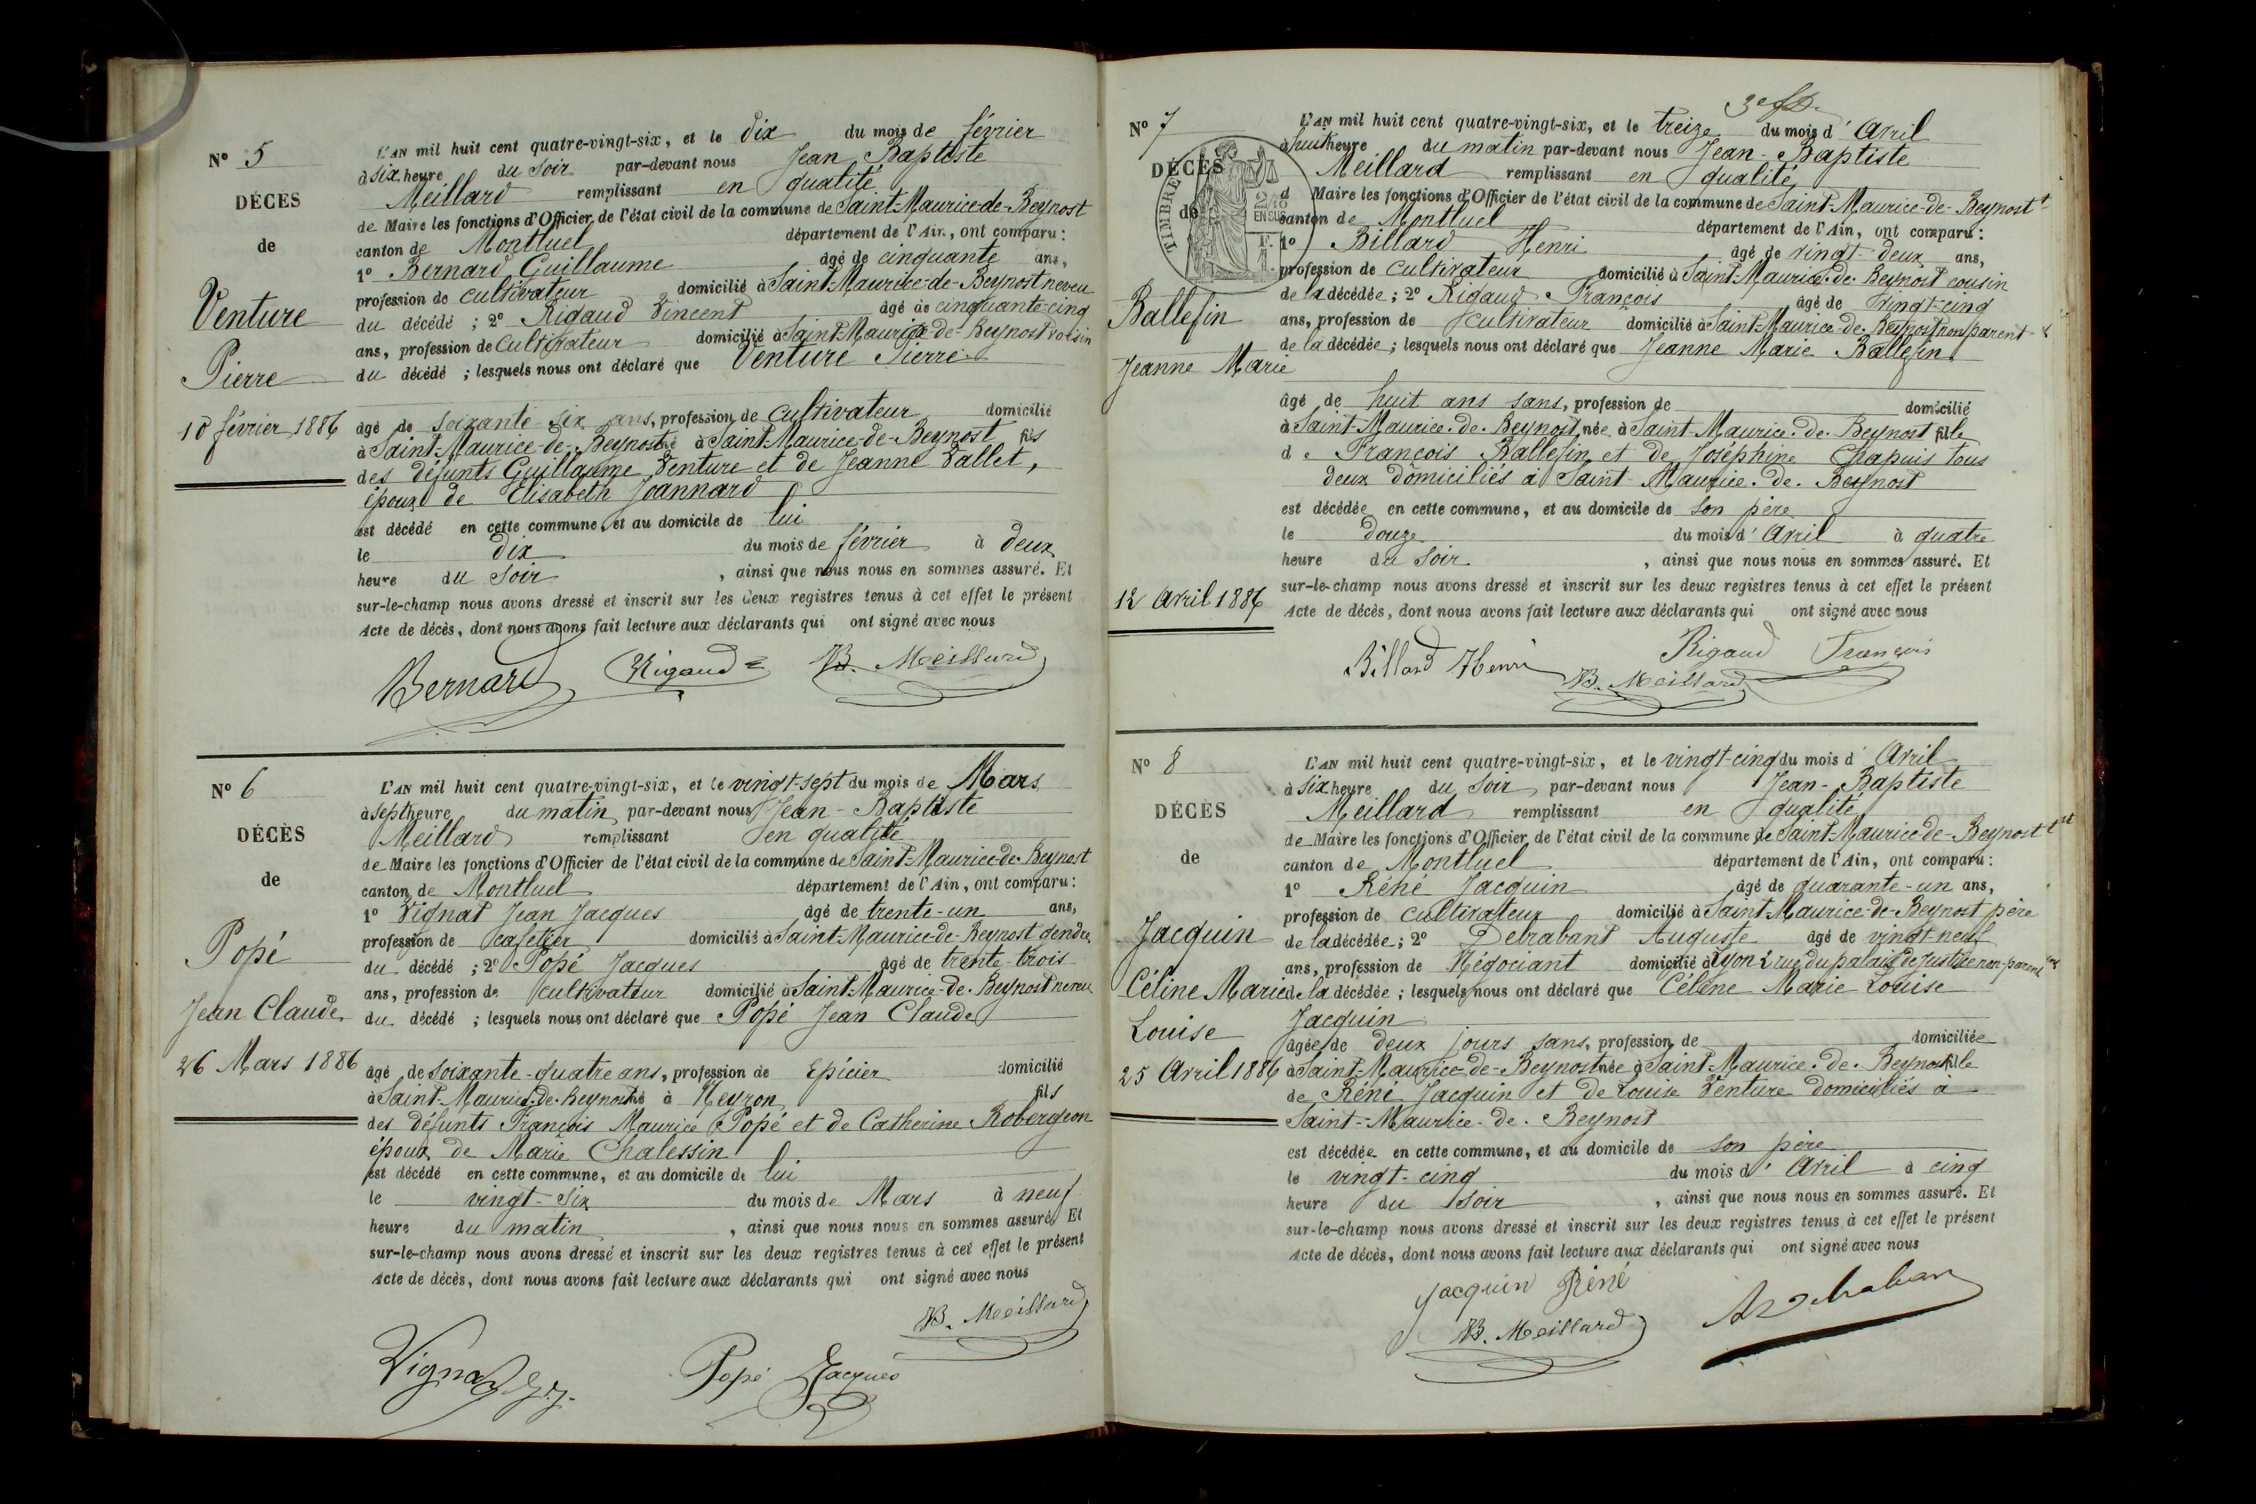 N° 5
DÉCÈS
de
Venture
Pierre
10 février 1886
L'AN mil huit cent quatre-vingt-six, et le dix du mois de février
à six heure du soir par-devant nous Jean Baptiste
Meillard remplissant en qualité
de Maire les fonctions d'Officier de l'état civil de la commune de Saint-Maurice-de-Beynost
canton de Montluel département de l'Ain, ont comparu :
1° Bernard Guillaume âgé de cinquante ans,
profession de cultivateur domicilié à Saint-Maurice-de-Beynost neveu
du décédé ; 2° Rigaud Vincent âgé de cinquante-cinq
ans, profession de Cultivateur domicilié à Saint-Maurice-de-Beynost voisin
du décédé ; lesquels nous ont déclaré que Venture Pierre
âgé de soixante-six ans, profession de Cultivateur domicilié
à Saint-Maurice-de-Beynost né à Saint-Maurice-de-Beynost fils
des défunts Guillaume Venture et de Jeanne Vallet,
époux de Elisabeth Joannard
est décédé en cette commune, et au domicile de lui
le dix du mois de février à deux
heure du soir, ainsi que nous nous en sommes assuré. Et
sur-le-champ nous avons dressé et inscrit sur les deux registres tenus à cet effet le présent
Acte de décès, dont nous avons fait lecture aux déclarants qui ont signé avec nous
Bernard Rigaud JB. Meillard
N° 6
DÉCÈS
de
Popé
Jean Claude
26 Mars 1886
L'AN mil huit cent quatre-vingt-six, et le vingt-sept du mois de Mars
à sept heure du matin par-devant nous Jean-Baptiste
Meillard remplissant en qualité
de Maire les fonctions d'Officier de l'état civil de la commune de Saint-Maurice-de-Beynost
canton de Montluel département de l'Ain, ont comparu :
1° Vignat Jean Jacques âgé de trente-un ans,
profession de cafetier domicilié à Saint-Maurice-de-Beynost gendre
du décédé ; 2° Popé Jacques âgé de trente-trois
ans, profession de cultivateur domicilié à Saint-Maurice-de-Beynost neveu
du décédé ; lesquels nous ont déclaré que Popé Jean Claude
âgé de soixante-quatre ans, profession de Epicier domicilié
à Saint-Maurice-de-Beynost né à Neyron fils
des défunts François Maurice Popé et de Catherine Robergeon
époux de Marie Chalessin
est décédé en cette commune, et au domicile de lui
le vingt-six du mois de Mars à neuf
heure du matin, ainsi que nous nous en sommes assuré. Et
sur-le-champ nous avons dressé et inscrit sur les deux registres tenus à cet effet le présent
Acte de décès, dont nous avons fait lecture aux déclarants qui ont signé avec nous
JB. Meillard
Vignat J.J. Popé Jacques
N° 7
DÉCÈS
de
Ballefin
Jeanne Marie
12 Avril 1886
TIMBRE
EN SUS
L'AN mil huit cent quatre-vingt-six, et le treize du mois d'Avril
à huit heure du matin par-devant nous Jean-Baptiste
Meillard remplissant en qualité
d Maire les fonctions d'Officier de l'état civil de la commune de Saint-Maurice-de-Beynost
canton de Montluel département de l'Ain, ont comparu :
1° Billard Henri âgé de vingt-deux ans,
profession de cultivateur domicilié à Saint-Maurice-de-Beynost cousin
de la décédée ; 2° Rigaud François âgé de vingt-cinq
ans, profession de cultivateur domicilié à Saint-Maurice-de-Beynost non parent
de la décédée ; lesquels nous ont déclaré que Jeanne Marie Ballefin
âgé de huit ans sans, profession de domicilié
à Saint-Maurice-de-Beynost, née à Saint-Maurice-de-Beynost fille
de François Ballefin et de Joséphine Chapuis tous
deux domiciliés à Saint-Maurice-de-Beynost
est décédée en cette commune, et au domicile de son père
le douze du mois d'Avril à quatre
heure du soir, ainsi que nous nous en sommes assuré. Et
sur-le-champ nous avons dressé et inscrit sur les deux registres tenus à cet effet le présent
Acte de décès, dont nous avons fait lecture aux déclarants qui ont signé avec nous
Billard Henri JB. Meillard Rigaud François
N° 8
DÉCÈS
de
Jacquin
Céline Marie
Louise
25 Avril 1886
L'AN mil huit cent quatre-vingt-six, et le vingt-cinq du mois d'Avril
à six heure du soir par-devant nous Jean-Baptiste
Meillard remplissant en qualité
de Maire les fonctions d'Officier de l'état civil de la commune de Saint-Maurice-de-Beynost
canton de Montluel département de l'Ain, ont comparu :
1° Réné Jacquin âgé de quarante-un ans,
profession de cultivateur domicilié à Saint-Maurice-de-Beynost père
de la décédée ; 2° Debrabant Auguste âgé de vingt-neuf
ans, profession de Négociant domicilié à Lyon 2 rue du palais de Justice non parent
de la décédée ; lesquels nous ont déclaré que Céline Marie Louise
Jacquin
âgée de deux jours sans, profession de domiciliée
à Saint-Maurice-de-Beynost née à Saint-Maurice-de-Beynost fille
de Réné Jacquin et de Louise Venture domiciliés à
Saint-Maurice-de-Beynost
est décédée en cette commune, et au domicile de son père
le vingt-cinq du mois d'Avril à cinq
heure du soir, ainsi que nous nous en sommes assuré. Et
sur-le-champ nous avons dressé et inscrit sur les deux registres tenus à cet effet le présent
Acte de décès, dont nous avons fait lecture aux déclarants qui ont signé avec nous
Jacquin Réné
JB. Meillard